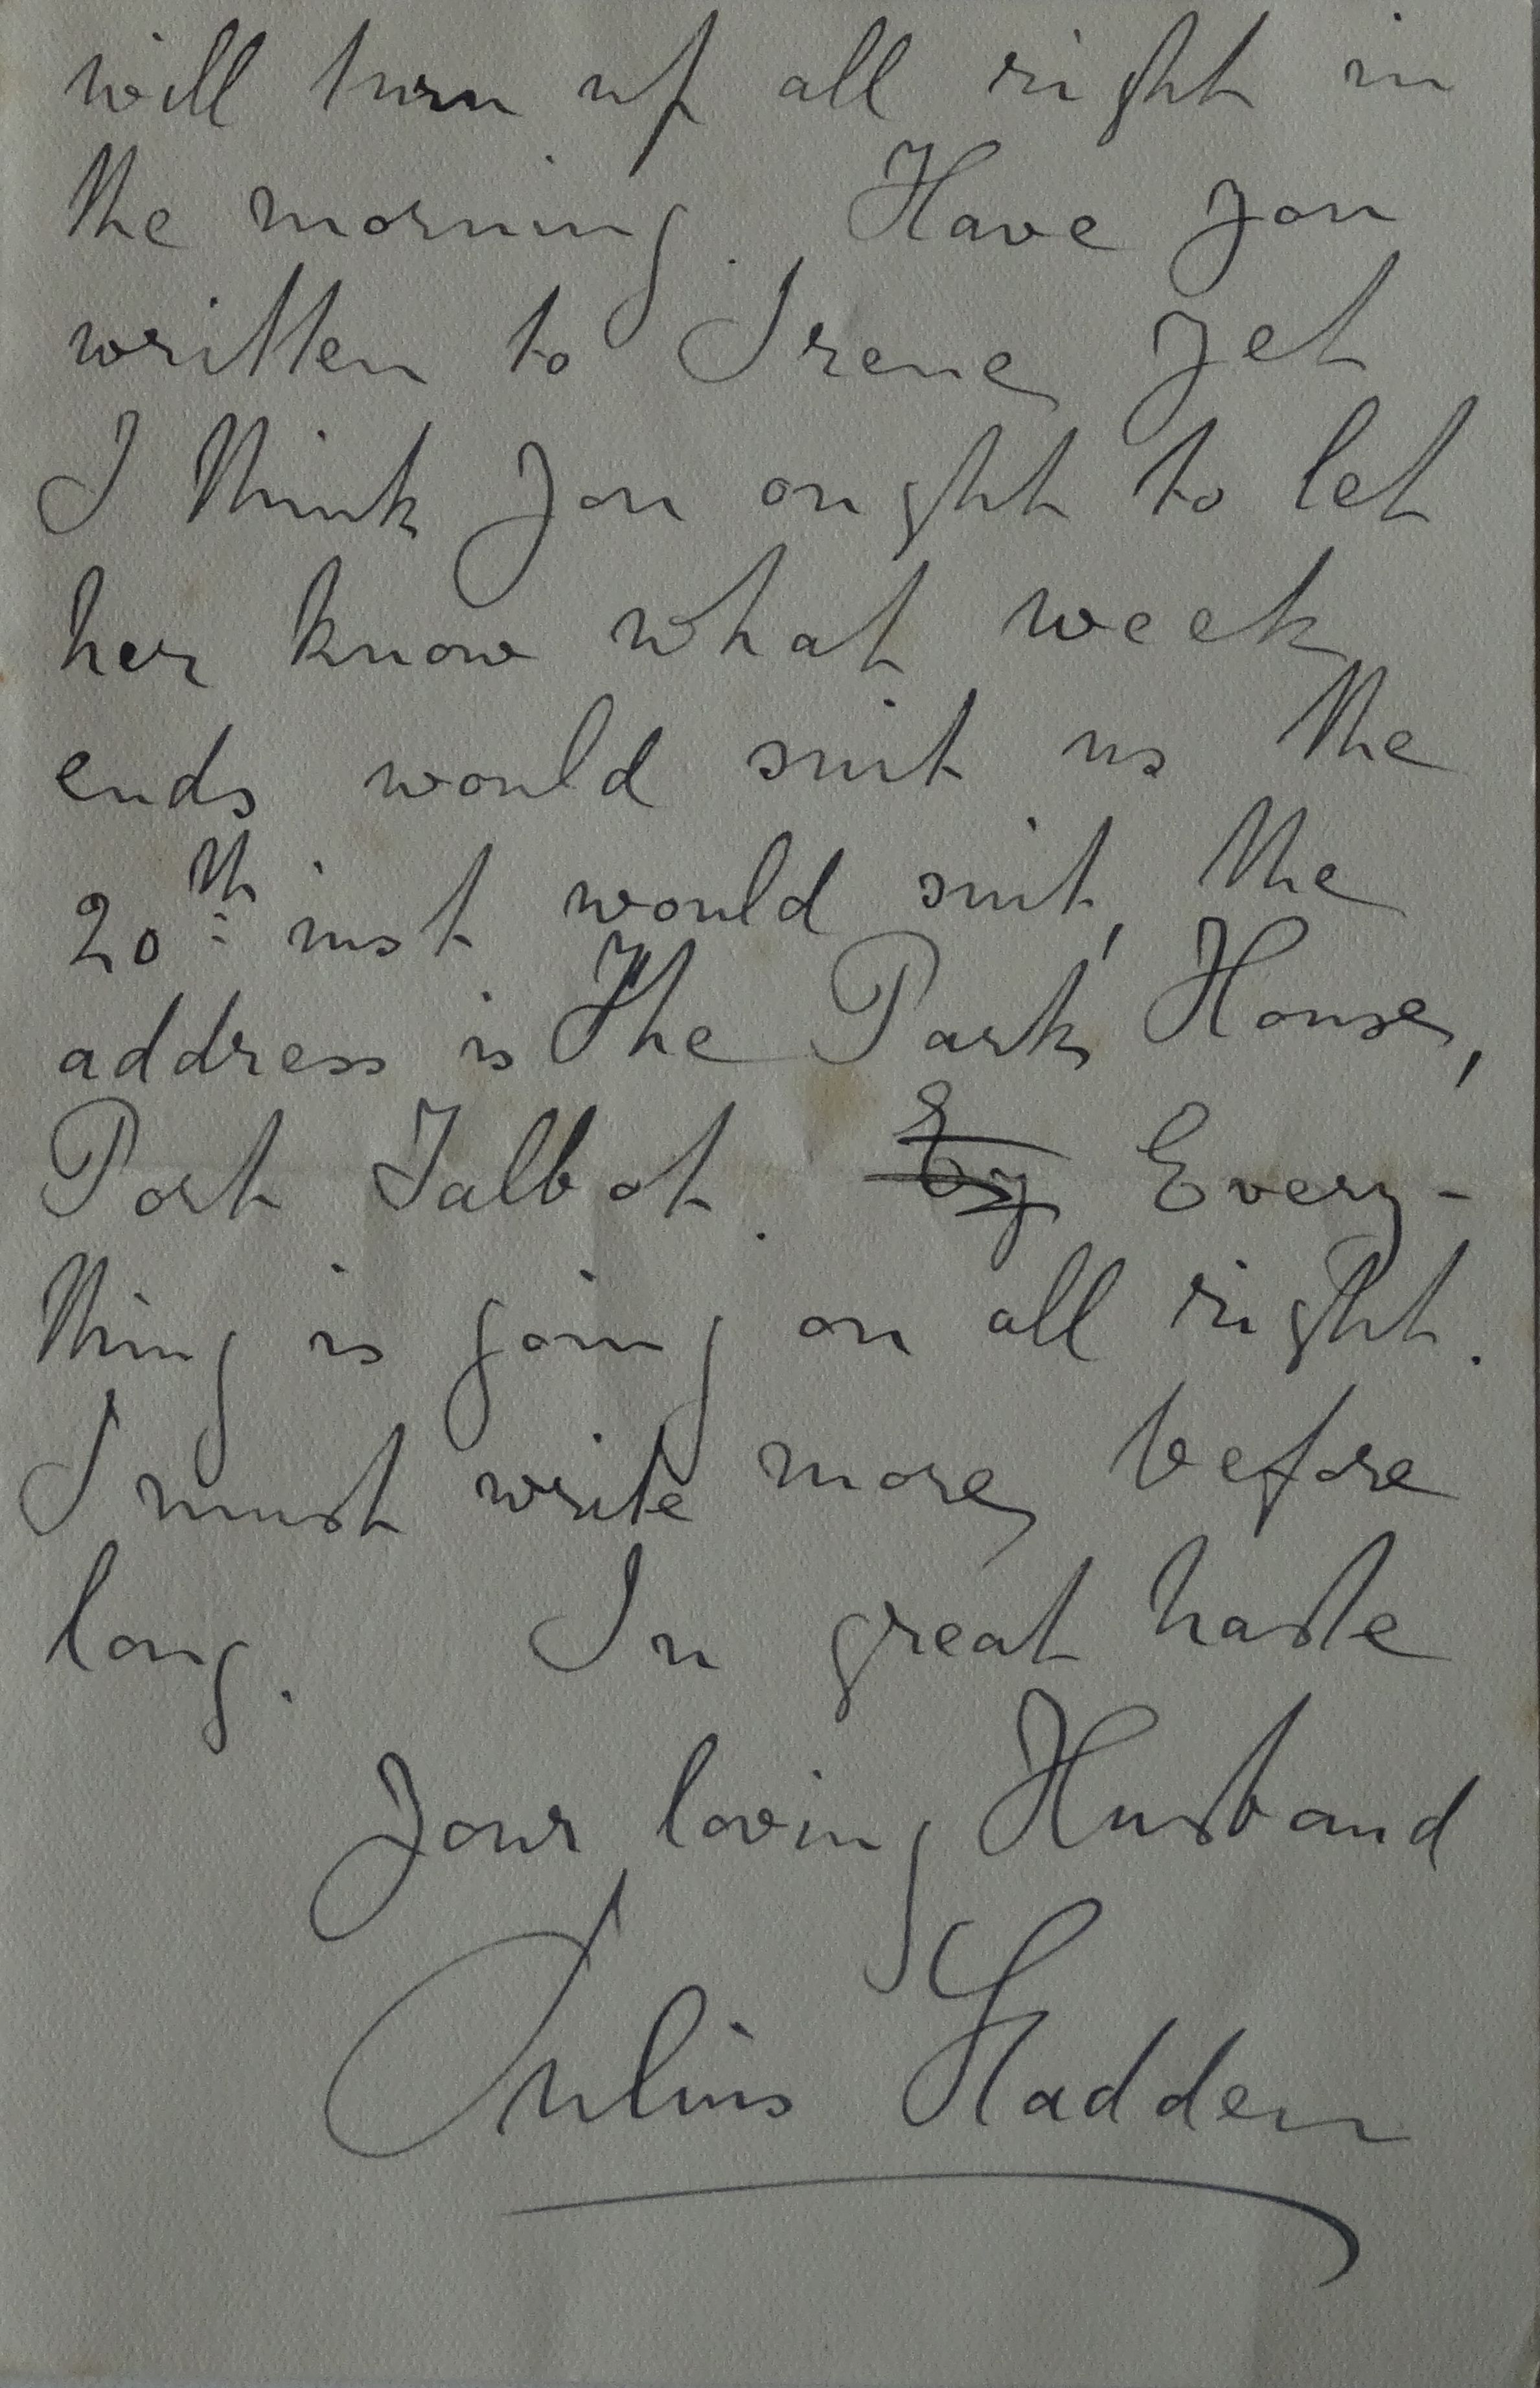 will turn up all right in
the morning. Have you
written to Irene yet
I think you ought to let
her know what week
ends would suit us the
20th inst would suit, the
address is The Park House,
Port Talbot. Ey Every-
thing is going on all right.
I must write more before
long. In great haste
Your loving Husband
Julius Hadden